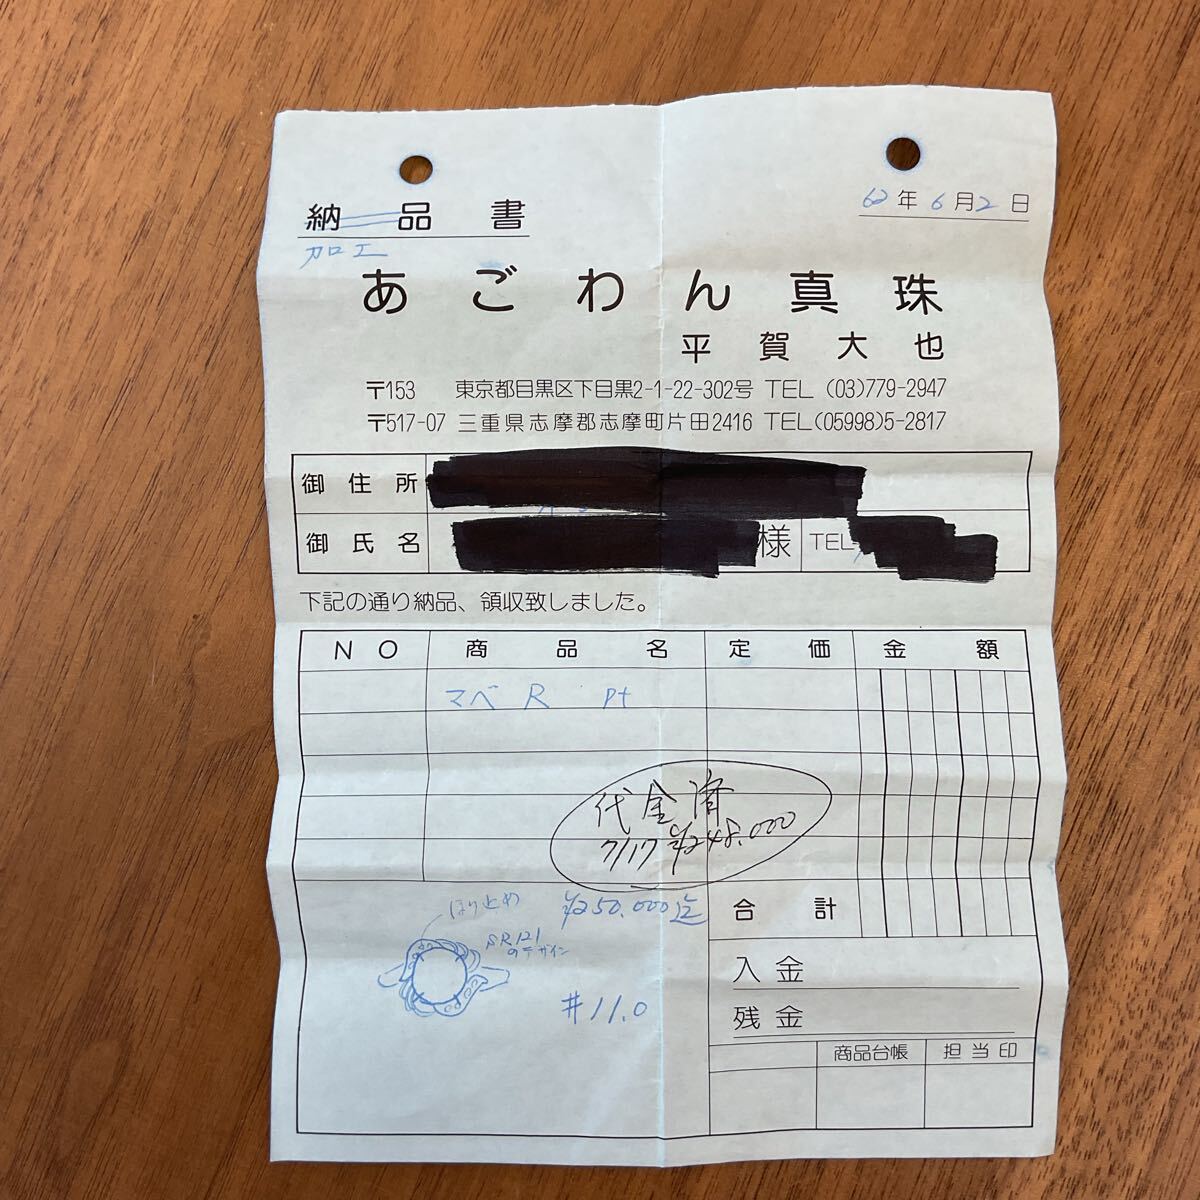 納品書
加工
62年6月2日
あごわん真珠
平賀大也
〒153 東京都目黒区下目黒2-1-22-302号 TEL (03)779-2947
〒517-07 三重県志摩郡志摩町片田2416 TEL(05998)5-2817
御住所
御氏名 様 TEL
下記の通り納品、領収致しました。
NO 商品名 定価 金額
マベ R Pt
代金済
7/17 ¥248.000
ほり止め ¥250.000迄
SR121
のデザイン
#11.0
合計
入金
残金
商品台帳 担当印